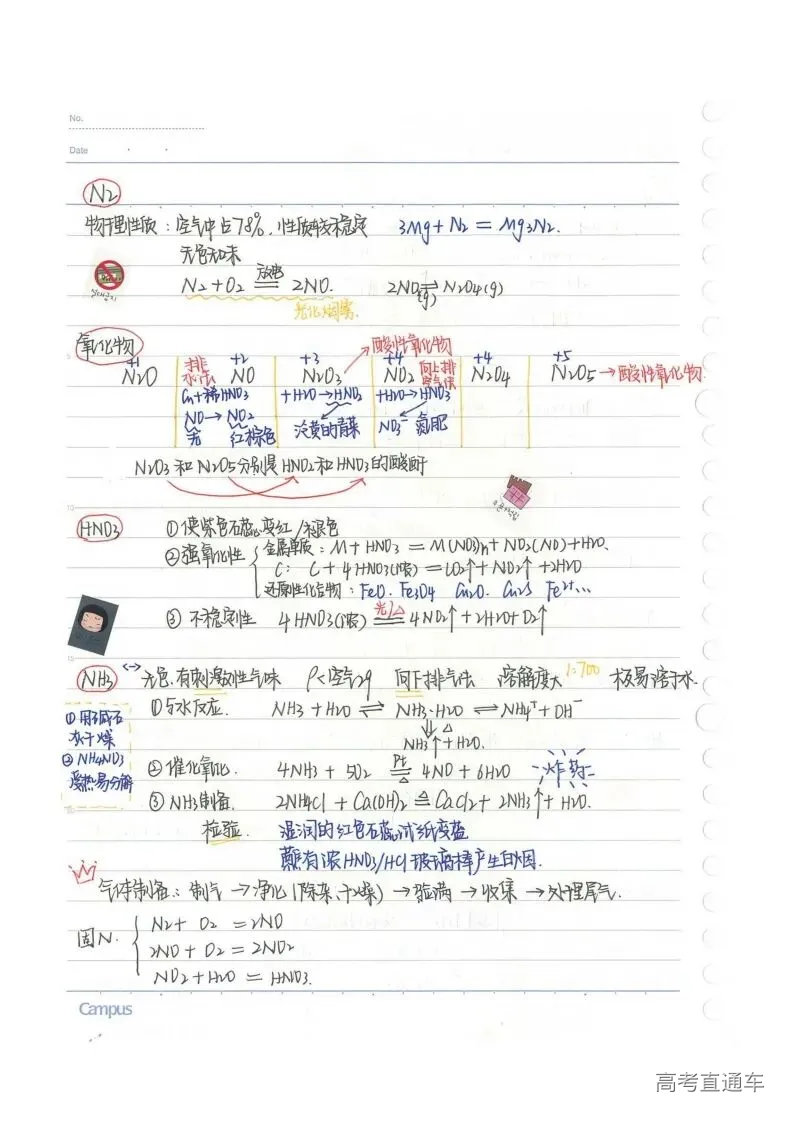 No.
Date
N2
物理性质：空气中占78%，性质较不稳定 3Mg+N2=Mg3N2.
无色无味
N2+O2 放电 == 2NO. 2NO2(g)⇌N2O4(g)
光化烟雾.
氧化物 酸性氧化物
+1 +2 +3 +4 +4 +5
N2O 排水法 NO N2O3 NO2 向上排空气法 N2O4 N2O5→酸性氧化物.
Cu+稀HNO3 +H2O→HNO2 +H2O→HNO3
NO→NO2 淡黄的青菜 NO3⁻ 氮肥
无 红棕色
N2O3和N2O5分别是HNO2和HNO3的酸酐
HNO3 ①使紫色石蕊变红/褪色
②强氧化性 金属单质：M+HNO3=M(NO3)n+NO2(NO)+H2O.
C：C+4HNO3(浓)=CO2↑+NO2↑+2H2O
还原性化合物：FeO. Fe3O4 Cu2O. Cu2S Fe²⁺...
③不稳定性 4HNO3(浓) 光/△ == 4NO2↑+2H2O+O2↑
NH3 ↔无色.有刺激性气味 ρ<空气29 向下排气法 溶解度大 1:700 极易溶于水.
①与水反应. NH3+H2O⇌NH3·H2O⇌NH4⁺+OH⁻
⇓△
NH3↑+H2O.
①用
干燥
②NH4NO3
受热易分解
②催化氧化. 4NH3+5O2 Pt ⇌ △ 4NO+6H2O 炸药
③NH3制备. 2NH4Cl+Ca(OH)2 △ = CaCl2+2NH3↑+H2O.
检验. 湿润的红色石蕊试纸变蓝
蘸有浓HNO3/HCl玻璃棒产生白烟.
气体制备：制气→净化(除杂、干燥)→验满→收集→处理尾气.
固N. N2+O2=2NO
2NO+O2=2NO2
NO2+H2O=HNO3.
Campus
高考直通车